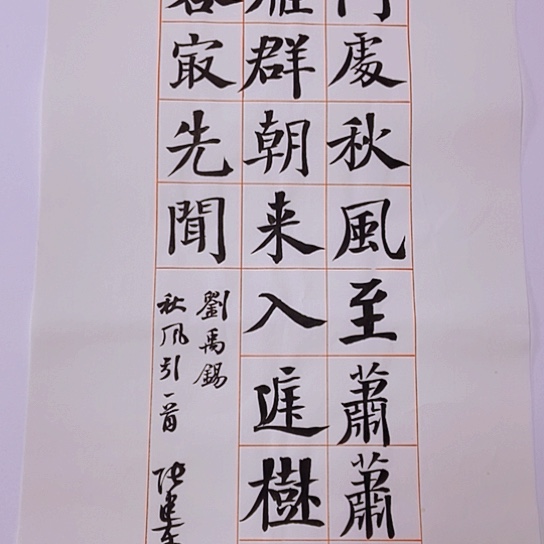 處秋風至蕭蕭
雁群朝来入庭樹
㝡先聞
劉禹錫
秋风引一首